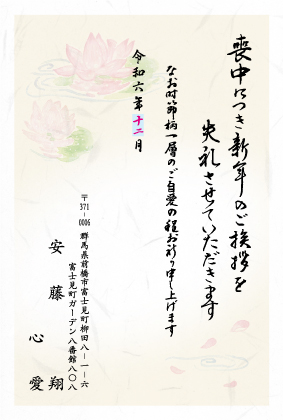 喪中につき新年のご挨拶を
失礼させていただきます
なお時節柄一層のご自愛の程お祈り申し上げます
令和六年十二月
〒371-0006
群馬県前橋市富士見町柳田八-一-六
富士見町ガーデン八番館八〇八
安藤
翔
心愛